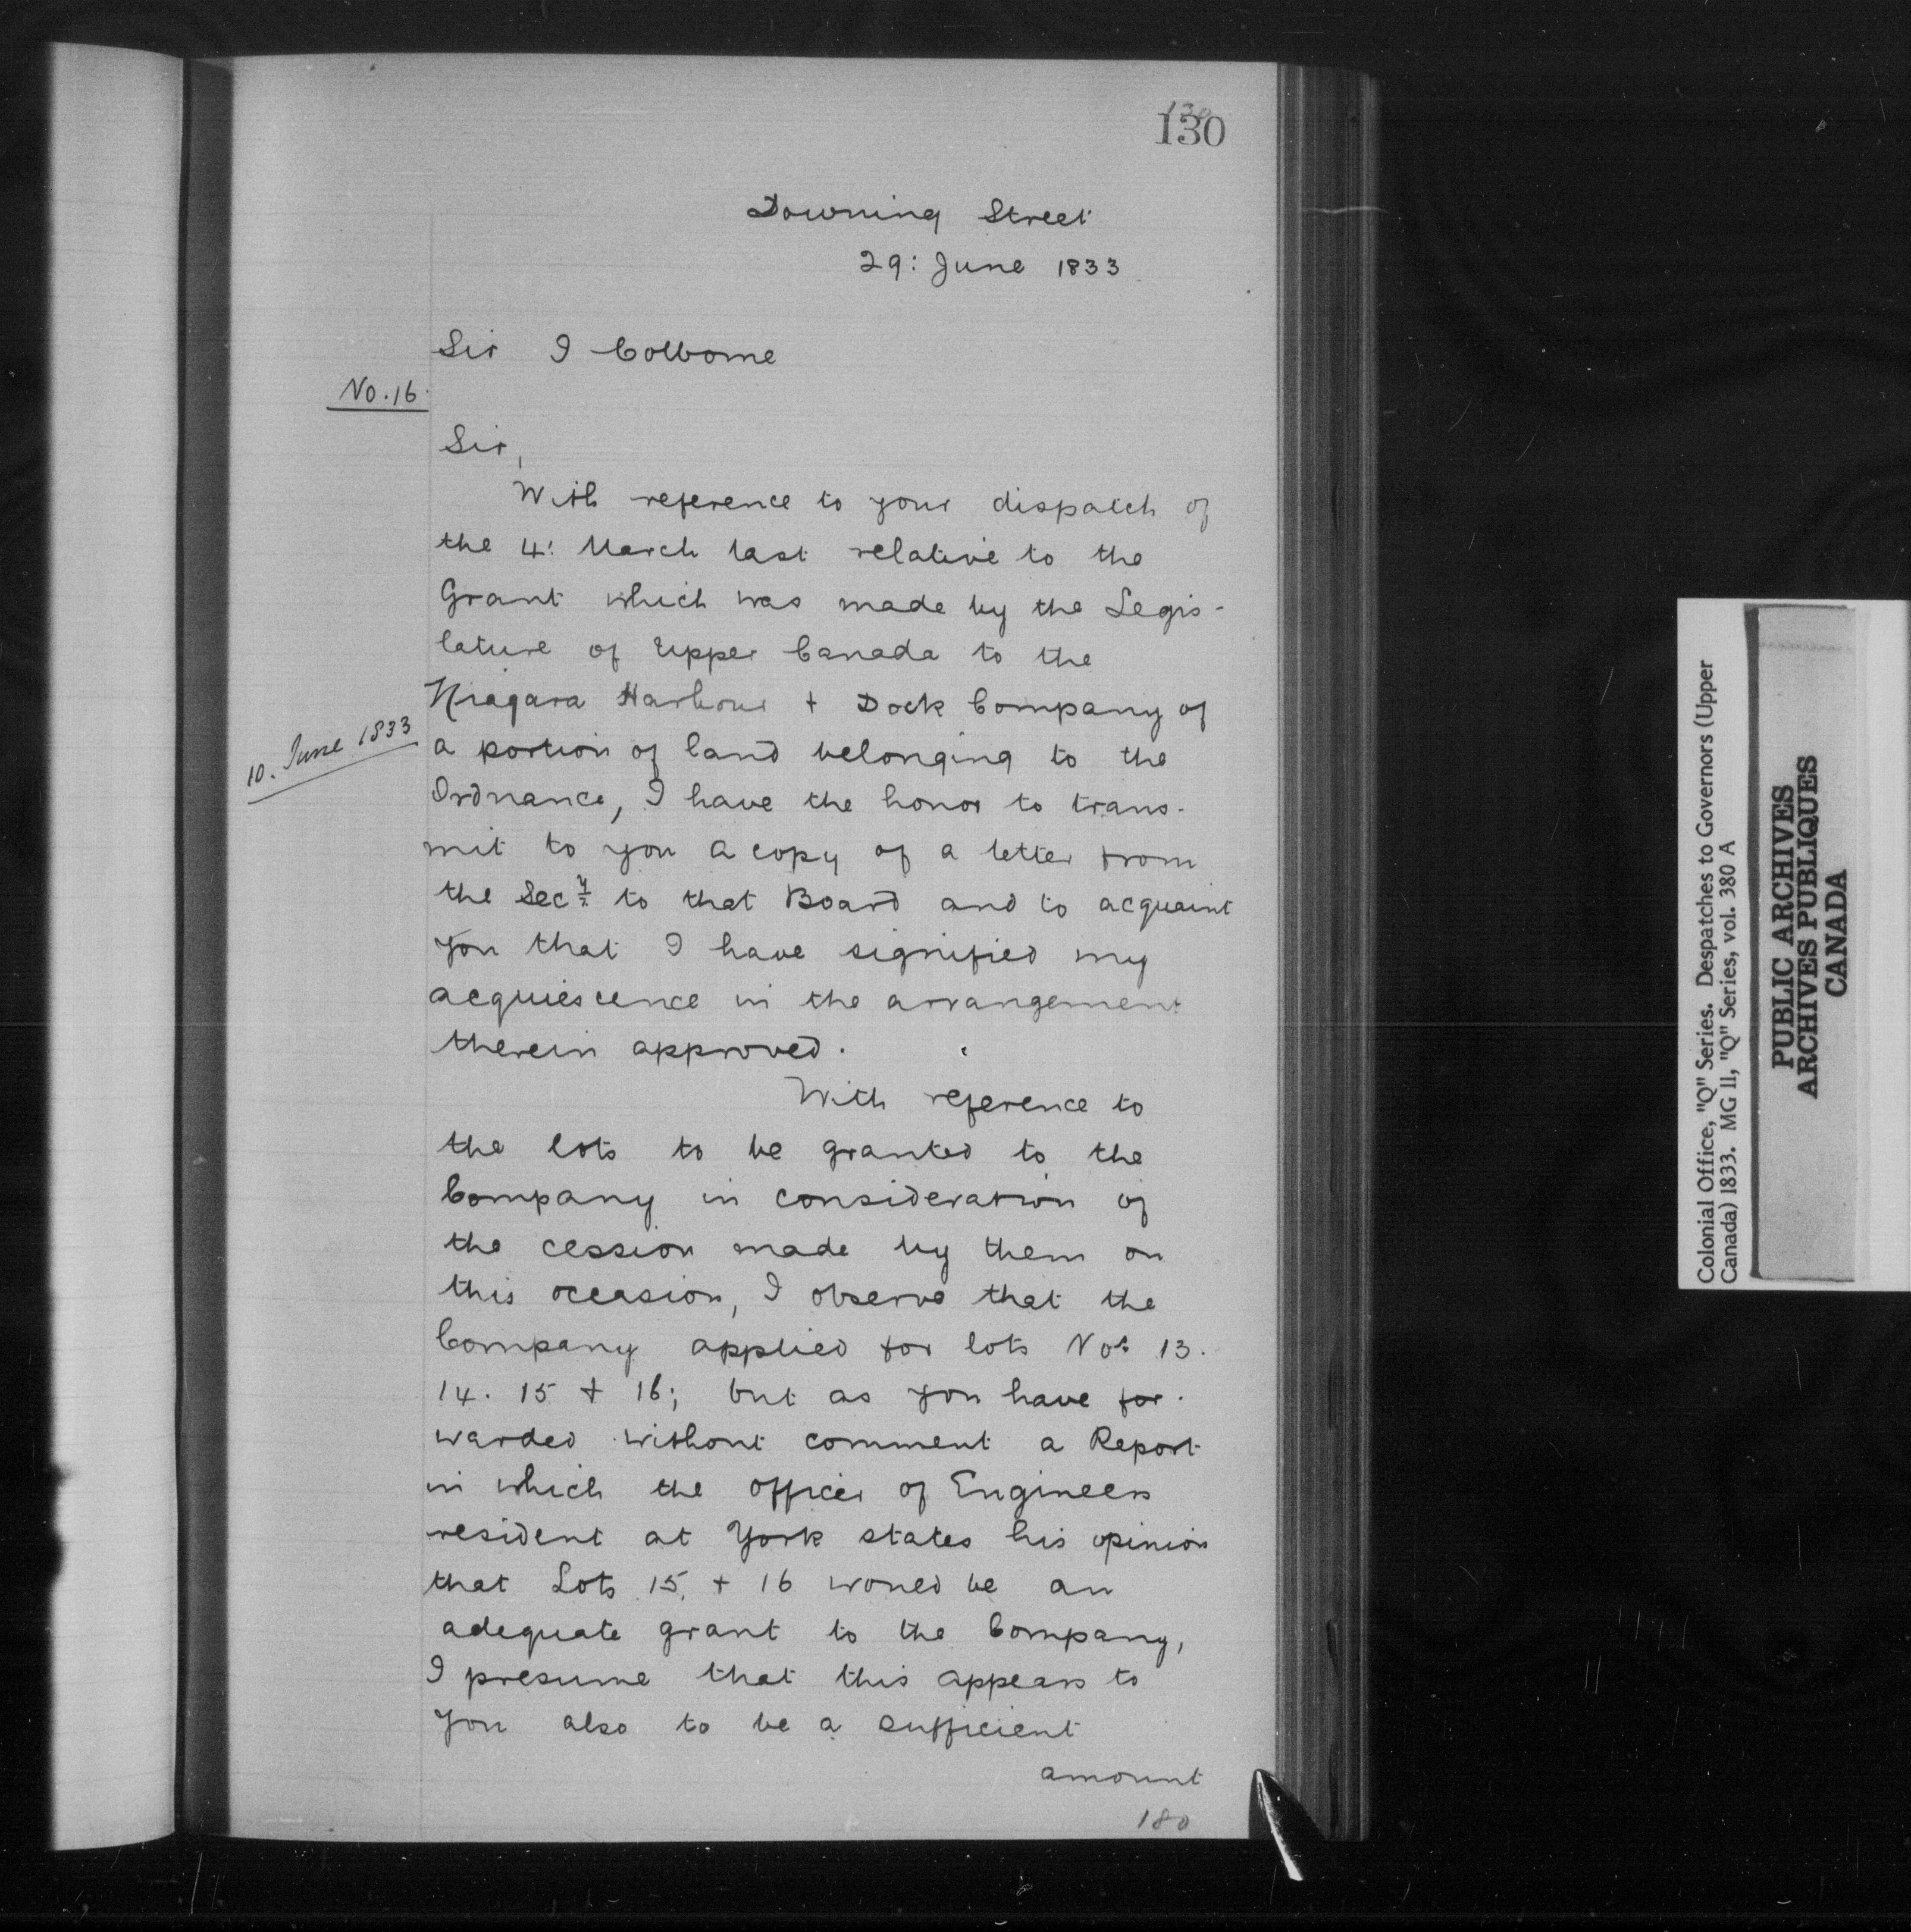 130
130
Downing Street
29: June 1833
Sir J Colborne
No. 16
Sir,
With reference to your dispatch of
the 4: March last relative to the
Grant which was made by the Legis-
lature of Upper Canada to the
Niagara Harbour + Dock Company of
10. June 1833
a portion of land belonging to the
Ordnance, I have the honor to trans-
mit to you a copy of a letter from
the Secy to that Board and to acquaint
you that I have signified my
acquiescence in the arrangement
therein approved.
With reference to
the lots to be granted to the
Company in consideration of
the cession made by them on
this occasion, I observe that the
Company applied for lots Nos 13.
14. 15 + 16; but as you have for-
warded without comment a Report
in which the officer of Engineers
resident at York states his opinion
that Lots 15, + 16 would be an
adequate grant to the Company,
I presume that this appears to
you also to be a sufficient
amount
180
Colonial Office, "Q" Series. Despatches to Governors (Upper
Canada) 1833. MG 11, "Q" Series, vol. 380 A
PUBLIC ARCHIVES
ARCHIVES PUBLIQUES
CANADA